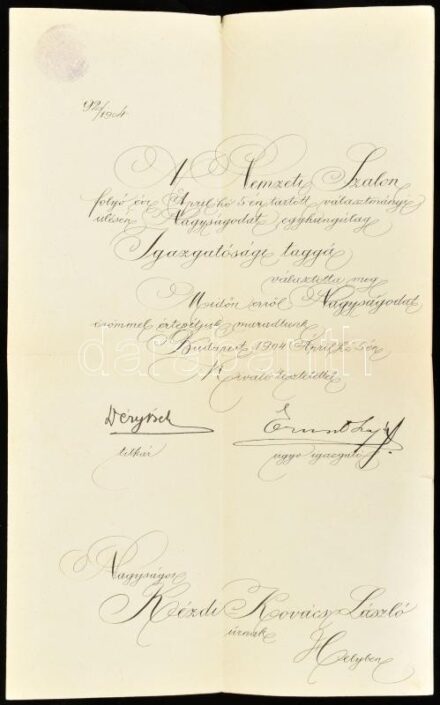 92/1904
A Nemzeti Szalon
folyó évi Április hó 5-én tartott választmányi
ülésén Nagyságodat egyhangúlag
Igazgatósági taggá
választotta meg
Midőn erről Nagyságodat
örömmel értesítjük maradtunk
Budapest 1904 Április hó 5-én
Kiváló tisztelettel
Déry Béla
titkár
Ernst Lajos
ügyv. igazgató
Nagyságos
Kézdi Kovács László
úrnak
Helyben
darabanth